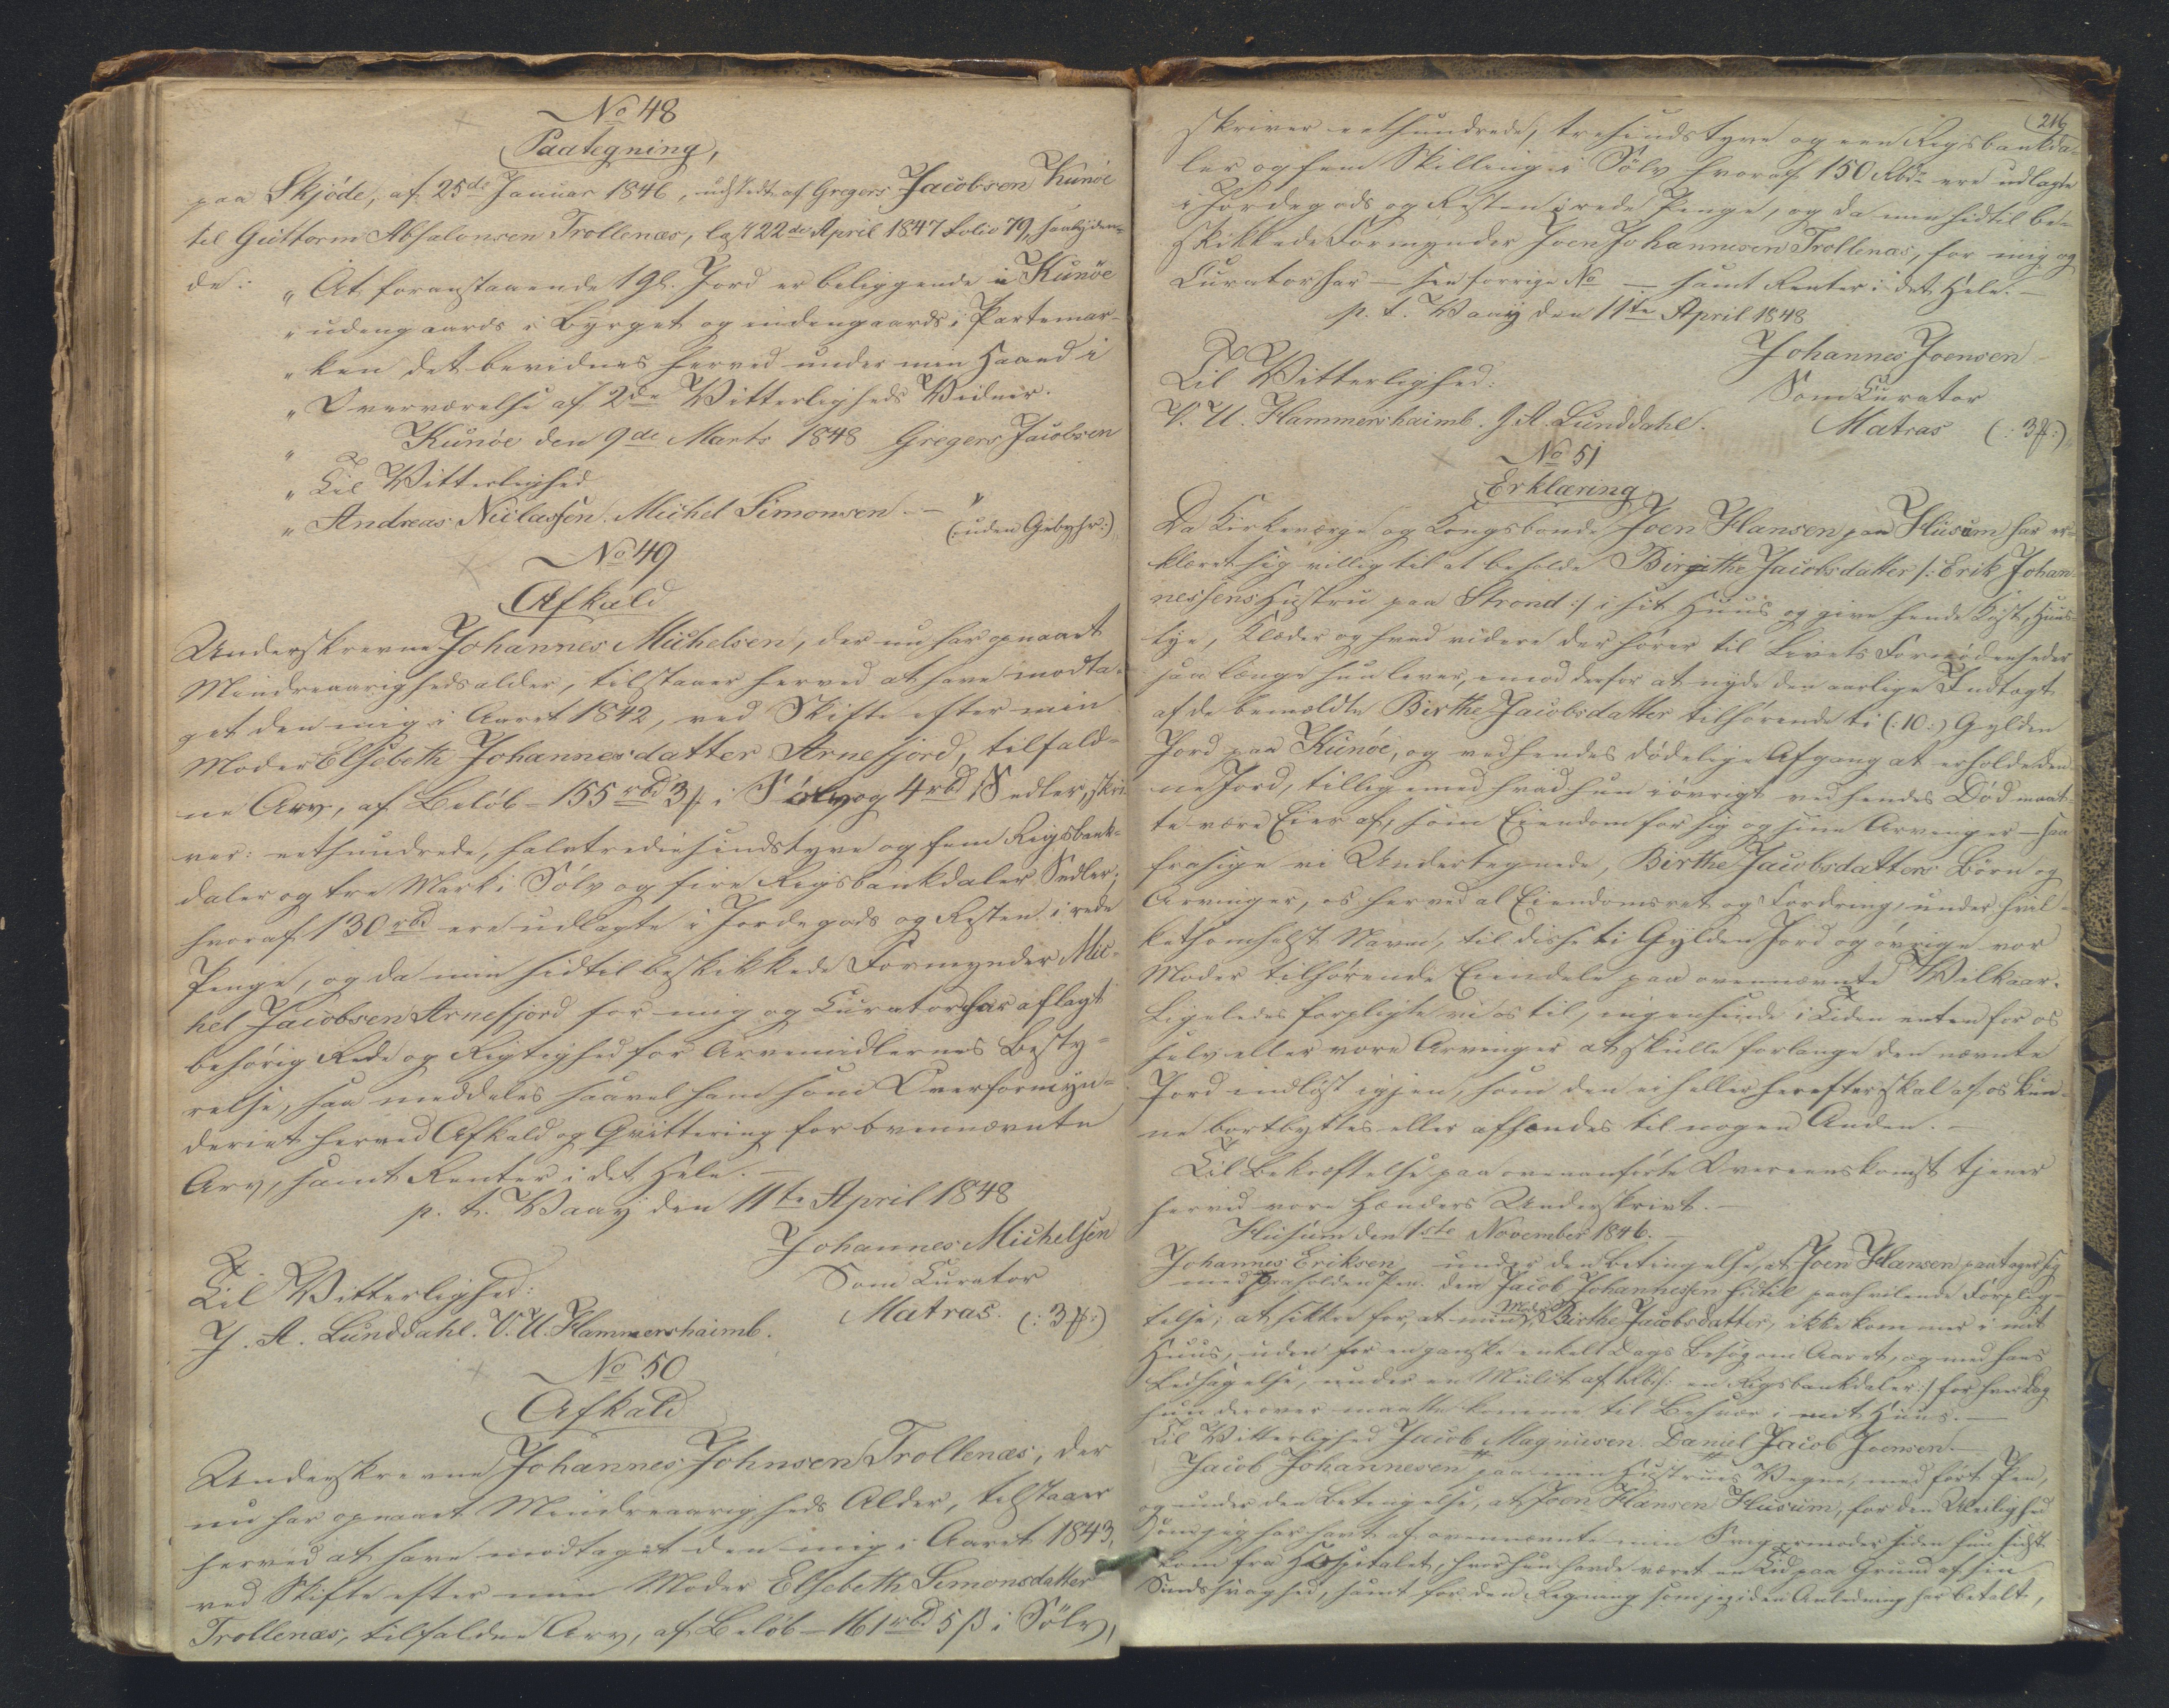 No 48
Paategning,
paa Skjöde, af 25de Januar 1846, udstedt af Gregers Jacobsen Kunöe
til Guttorm Absalonsen Trollenæs, læst 22de April 1847 Folio 79, saalyden-
de:
„ At foranstaaende 1 Gl. Jord er beliggende i Kunöe
„ udengaards i Byrget og indengaards i Partemar-
„ ken det bevidnes herved under min Haand i
„ Overværelse af 2de Vitterligheds Vidner.
„ Kunöe den 9de Marts 1848 Gregers Jacobsen
„ Til Vitterlighed
„ Andreas Niclassen. Michel Simonsen –– „
(: uden Gebyhr:)
No 49
Afkald
Underskrevne Johannes Michelsen, der nu har opnaaet
Mindreaarighedsalder, tilstaaer herved at have modta-
get den mig i Aaret 1842, ved Skifte efter min
Moder Elsebeth Johannesdatter Arnefjord, tilfald-
ne Arv, af Beløb – 155 rbd 3 ß i Sölv og 4 rbd Sedler, skri-
ver: eethundrede, halvtrediesindstyve og fem Rigsbank-
daler og tre Mark i Sölv og fire Rigsbankdaler Sedler;
hvoraf 130 rbd ere udlagte i Jordegods og Resten i rede
Penge, og da min hidtil beskikkede Formynder Mic-
hel Jacobsen Arnefjord for mig og Curator har aflagt
behörig Rede og Rigtighed for Arvemidlernes Besty-
relse, saa meddeles saavel ham som Overformyn-
deriet herved Afkald og Qvittering for ovennævnte
Arv, samt Renter i det Hele. –
p. t. Waay den 11te April 1848
Johannes Michelsen
Til Vitterlighed:
Som Curator
J. A. Lunddahl. V. U. Hammershaimb.
Matras. (: 3 ß:)
No 50
Afkald
Underskrevne Johannes Johnsen Trollenæs, der
nu har opnaaet Mindreaarigheds Alder, tilstaaer
herved at have modtaget den mig i Aaret 1843,
ved Skifte efter min Moder Elsebeth Simonsdatter
Trollenæs, tilfaldne Arv, af Beløb – 161 rbd 5 ß i Sölv,
216
skriver eethundrede, tresindstyve og een Rigsbankda-
ler og fem Skilling i Sölv hvoraf 150 Rbd ere udlagte
i Jordegods og Resten i rede Penge, og da min hidtil be-
skikkede Formynder Joen Johannesen Trollenæs, for mig og
Curator har – see forrige No – samt Renter i det Hele. –
p. t. Waay den 11te April 1848
Johannes Joensen
Til Vitterlighed:
Som Curator
V. U. Hammershaimb. J. A. Lunddahl.
Matras (: 3 ß:)
No 51
Erklæring
Da Kirkeværge og Kongsbonde Joen Hansen paa Husum har er-
klæret sig villig til at beholde Birgithe Jacobsdatter /: Erik Johan-
nessens Hustru paa Strond :/ i sit Huus og give hende Kost, Huus-
lye, Klæder og hvad videre der hører til Livets Fornødenheder
saa længe hun lever, imod derfor at nyde den aarlige Indtægt
af de bemældte Birthe Jacobsdatter tilhørende ti (: 10 :) Gylden
Jord paa Kunöe, og ved hendes dødelige Afgang at erholde den-
ne Jord, tilligemed hvad hun i övrigt ved hendes Död maat-
te være Eier af, som Eiendom for sig og sine Arvinger – saa
frasige vi Undertegnede, Birthe Jacobsdatters Børn og
Arvinger, os herved al Eiendomsret og Fordring, under hvil-
ketsomhelst Navn, til disse ti Gylden Jord og övrige vor
Moder tilhørende Eiendele paa ovennævnte Vilkaar.
Ligeledes forpligte vi os til, ingensinde i Tiden enten for os
selv eller vore Arvinger at skulle forlange den nævnte
Jord indløst igjen, som den ei heller herefter skal af os kun-
ne bortbyttes eller afhændes til nogen Anden. –
Til Bekræftelse paa ovenanførte Overeenskomst tjener
herved vore Hænders Underskrivt. –
Husum den 1ste November 1846. –
Johannes Eriksen under den Betingelse, at Joen Hansen paatager sig
med paaholden Pen. den Jacob Johannessen hidtil paahvilende Forplig-
telse, at sikkre for, at min Moder Birthe Jacobsdatter, ikke kommer i mit
Huus, uden for en ganske enkelt Dags Besøg om Aaret, og med hans
Ledsagelse, under en Mulct af 1 Rbd /: en Rigsbankdaler :/ for hver Dag
hun derover maatte komme til Besvær i mit Huus. –
Til Vitterlighed Jacob Magnusen. Daniel Jacob Joensen. –
Jacob Johannesen paa min Hustrues Vegne, med ført Pen,
og under den Betingelse, at Joen Hansen Husum, for den Uleilighed
som jeg har havt af ovennævnte min Svigermoder siden hun sidst
kom fra Hospitalet, hvor hun havde været en Tid paa Grund af sin
Sindssvaghed, samt for den Regning som jeg i den Anledning har betalt,